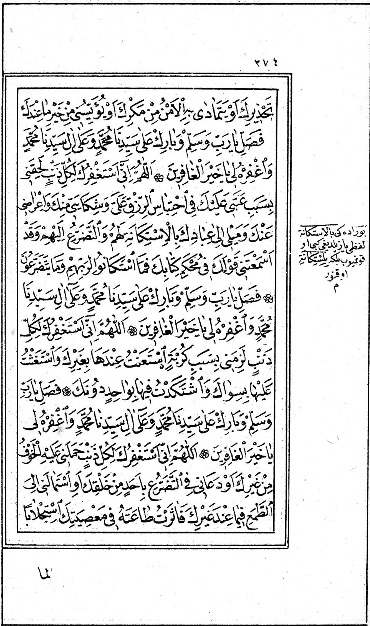 ٢٧٤
تحذيرك أو يتمادى بي الأمن من مكرك أو يؤيسني من خير ما عندك
فصل يا رب وسلم وبارك على سيدنا محمد وعلى آل سيدنا محمد
وأغفره لي يا خير الغافرين ۞ اللهم إني أستغفرك لكل ذنب لحقني
بسبب عتبي عليك في احتباس الرزق علي وشكايتي منك وإعراضي
عنك وميلي إلى عبادك بالاستكانة لهم والتضرع إليهم وقد
أسمعتني قولك في محكم كتابك فما استكانوا لربهم وما يتضرعون
۞ فصل يا رب وسلم وبارك على سيدنا محمد وعلى آل سيدنا
محمد وأغفره لي يا خير الغافرين ۞ اللهم إني أستغفرك لكل
ذنب لزمني بسبب كربة استعنت عندها بغيرك واستغثت
عليها بسواك واستكدت فيها بواحد دونك ۞ فصل يا رب
وسلم وبارك على سيدنا محمد وعلى آل سيدنا محمد وأغفره لي
يا خير الغافرين ۞ اللهم إني أستغفرك لكل ذنب حملني عليه الخوف
من غيرك أو دعاني في التضرع بأحد من خلقك أو استمالني إلى
الطمع فيما عند غيرك فآثرت طاعته في معصيتك استجلابا
لما
بوراده كي بالاستكانة